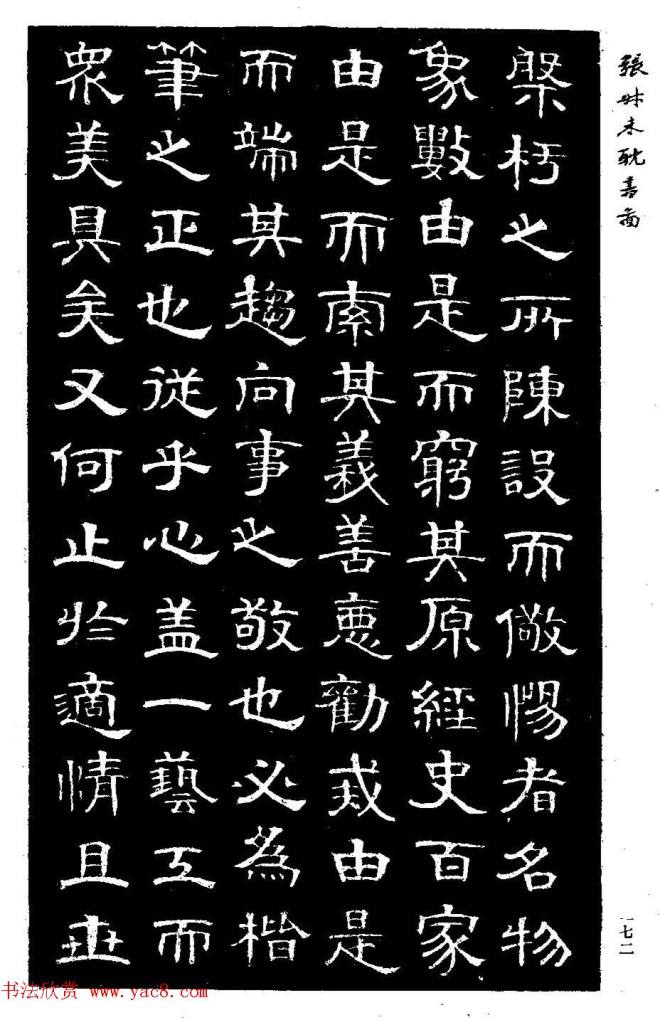 張叔未耽書啚
槃杅之所陳設而儆惕者名物
象數由是而窮其原經史百家
由是而索其義善惡勸戒由是
而端其趨向事之敬也必為楷
筆之正也従乎心盖一藝工而
眾美具矣又何止於適情且垂
一七二
书法欣赏 www.yac8.com